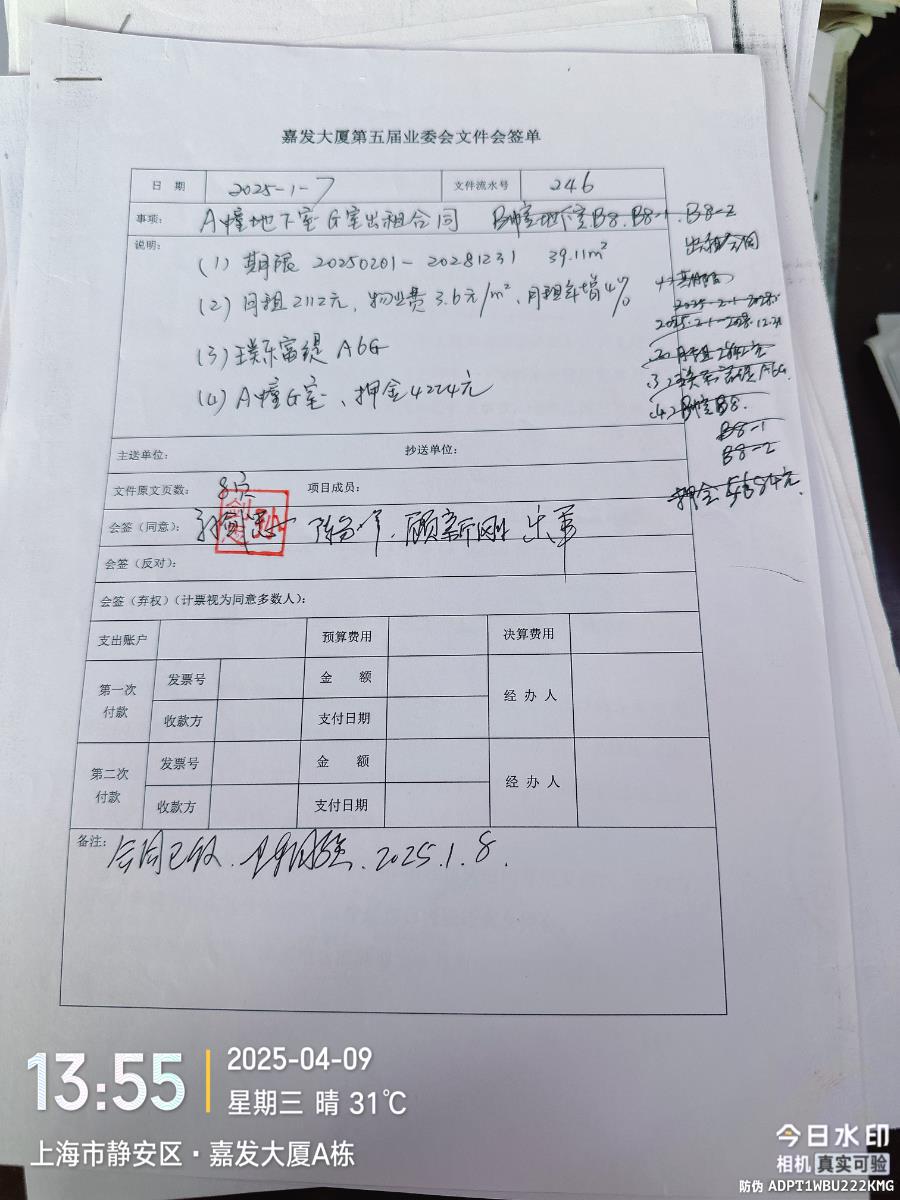 嘉发大厦第五届业委会文件会签单
日 期 2025-1-7 文件流水号 246
事项: A幢地下室G室出租合同 B幢地下室.B8.B8-1.B8-2
出租合同
说明:
(1) 期限 20250201-20281231 39.11m²
(2) 月租2112元, 物业费3.6元/m², 月租年增4%
(3) A6G
(4) A幢G室、押金4224元
2025.2-1-2028.12.31
B8.
B8-1
B8-2
押金
主送单位: 抄送单位:
文件原文页数: 8页 项目成员:
会签(同意): 顾新刚
会签(反对):
会签(弃权)(计票视为同意多数人):
支出账户 预算费用 决算费用
第一次付款 发票号 金 额 经 办 人
收款方 支付日期
第二次付款 发票号 金 额 经 办 人
收款方 支付日期
备注: 合同已收. 2025.1.8.
13:55 2025-04-09
星期三 晴 31℃
上海市静安区·嘉发大厦A栋
今日水印
相机 真实可验
防伪 ADPT1WBU222KMG